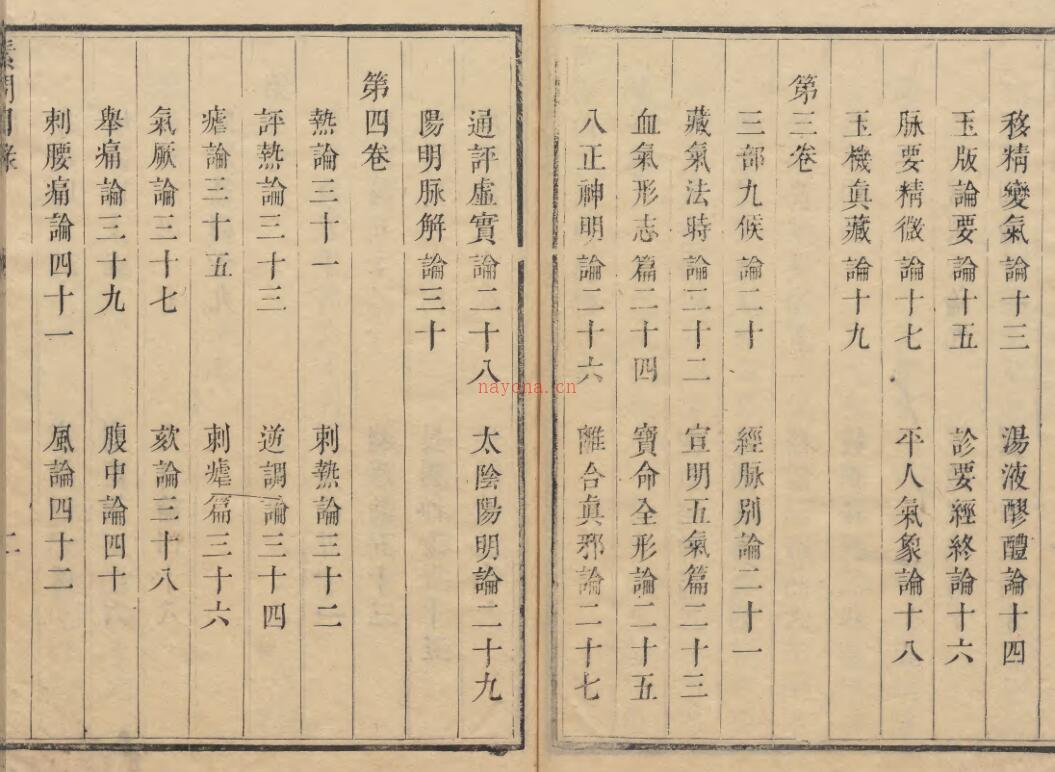 移精變氣論十三　湯液醪醴論十四
玉版論要論十五　診要經終論十六
脉要精微論十七　平人氣象論十八
玉機真藏論十九
第三卷
三部九候論二十　經脉別論二十一
藏氣法時論二十二　宣明五氣篇二十三
血氣形志篇二十四　寶命全形論二十五
八正神明論二十六　離合真邪論二十七
通評虛實論二十八　太陰陽明論二十九
陽明脉解論三十
第四卷
熱論三十一　刺熱論三十二
評熱論三十三　逆調論三十四
瘧論三十五　刺瘧篇三十六
氣厥論三十七　欬論三十八
舉痛論三十九　腹中論四十
刺腰痛論四十一　風論四十二
素問目錄　二
nayona.cn